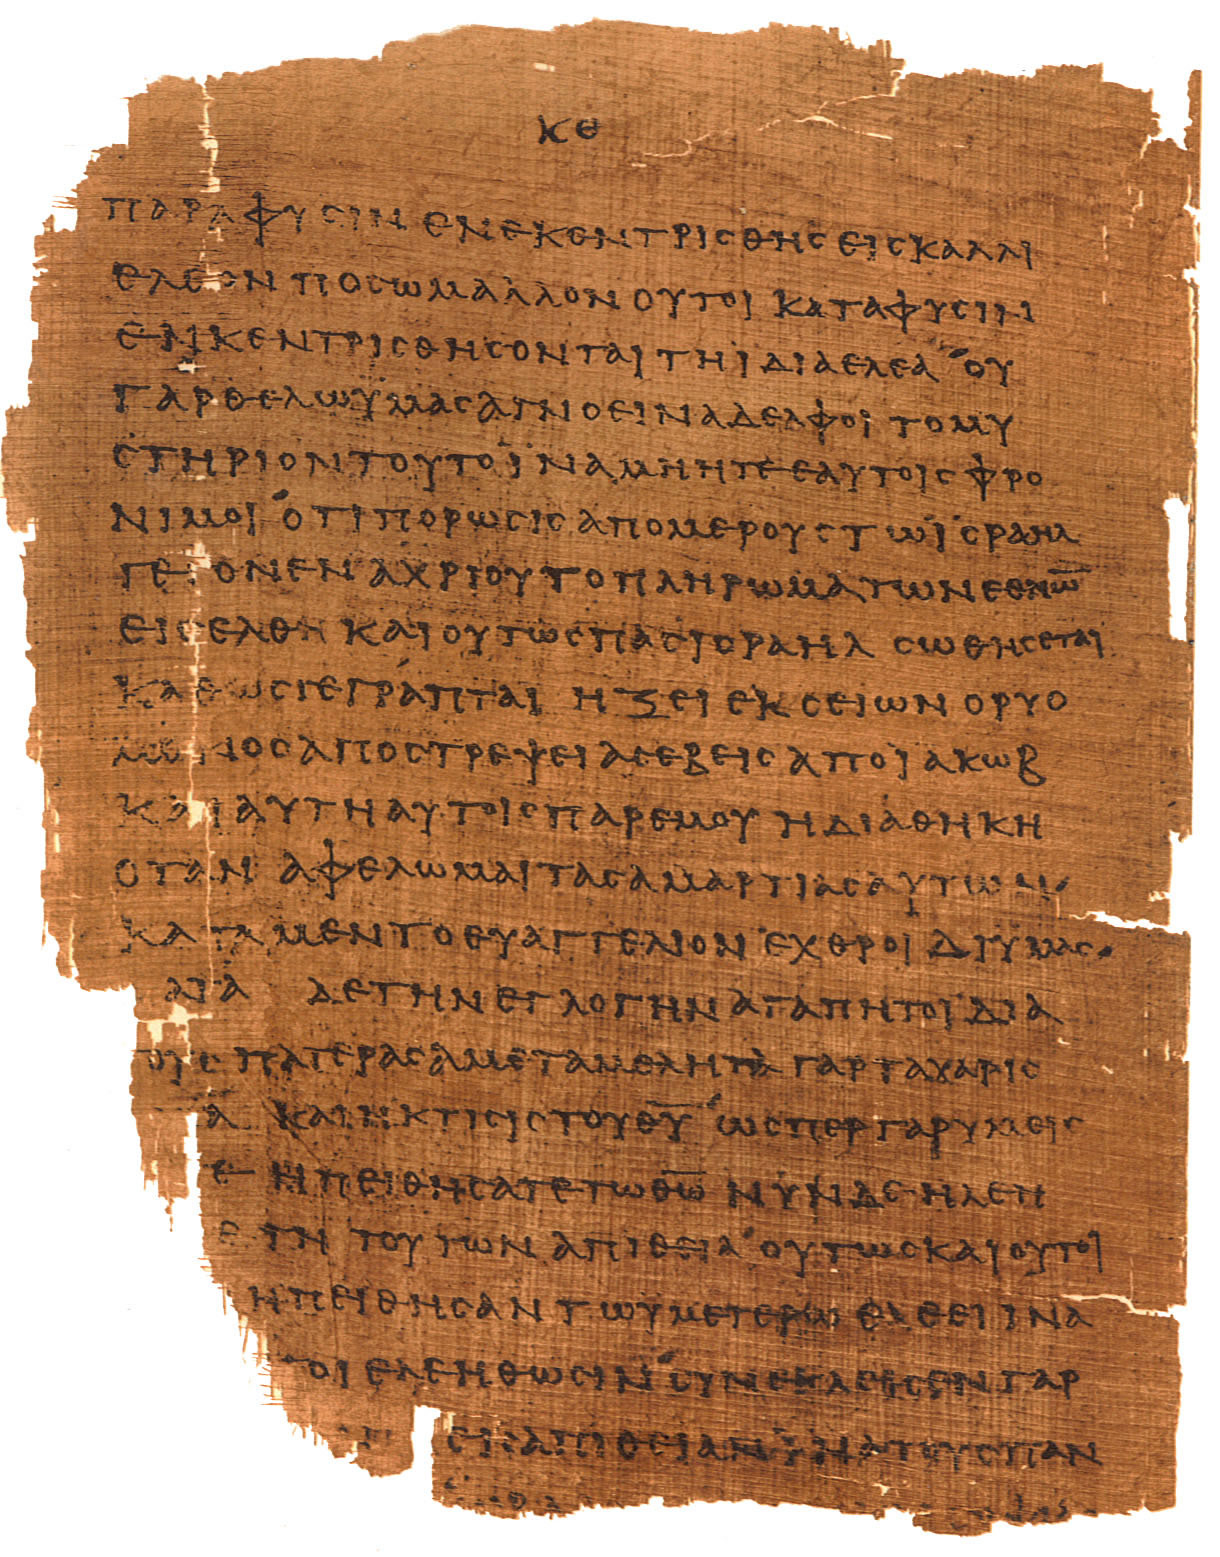 ΚΘ
ΠΑΡΑ ΦΥϹΙΝ ΕΝΕΚΕΝΤΡΙϹΘΗϹ ΕΙϹ ΚΑΛΛΙ
ΕΛΕΟΝ ΠΟϹΩ ΜΑΛΛΟΝ ΟΥΤΟΙ ΚΑΤΑ ΦΥϹΙΝ
ΕΝΚΕΝΤΡΙϹΘΗϹΟΝΤΑΙ ΤΗ ΙΔΙΑ ΕΛΕΑ ΟΥ
ΓΑΡ ΘΕΛΩ ΫΜΑϹ ΑΓΝΟΕΙΝ ΑΔΕΛΦΟΙ ΤΟ ΜΥ
ϹΤΗΡΙΟΝ ΤΟΥΤΟ ΪΝΑ ΜΗ ΗΤΕ ΕΑΥΤΟΙϹ ΦΡΟ
ΝΙΜΟΙ ΟΤΙ ΠΟΡΩϹΙϹ ΑΠΟ ΜΕΡΟΥϹ ΤΩ ΪϹΡΑΗΛ
ΓΕΓΟΝΕΝ ΑΧΡΙ ΟΥ ΤΟ ΠΛΗΡΩΜΑ ΤΩΝ ΕΘΝΩ̅
ΕΙϹΕΛΘΗ ΚΑΙ ΟΥΤΩϹ ΠΑϹ ΙϹΡΑΗΛ ϹΩΘΗϹΕΤΑΙ
ΚΑΘΩϹ ΓΕΓΡΑΠΤΑΙ ΗΞΕΙ ΕΚ ϹΕΙΩΝ Ο ΡΥΟ
ΜΕΝΟϹ ΑΠΟϹΤΡΕΨΕΙ ΑϹΕΒΕΙϹ ΑΠΟ ΪΑΚΩΒ
ΚΑΙ ΑΥΤΗ ΑΥΤΟΙϹ ΠΑΡ ΕΜΟΥ Η ΔΙΑΘΗΚΗ
ΟΤΑΝ ΑΦΕΛΩΜΑΙ ΤΑϹ ΑΜΑΡΤΙΑϹ ΑΥΤΩΝ
ΚΑΤΑ ΜΕΝ ΤΟ ΕΥΑΓΓΕΛΙΟΝ ΕΧΘΡΟΙ ΔΙ ΥΜΑϹ
ΔΕ ΤΗΝ ΕΓΛΟΓΗΝ ΑΓΑΠΗΤΟΙ ΔΙΑ
ΠΑΤΕΡΑϹ ΑΜΕΤΑΜΕΛΗΤΑ ΓΑΡ ΤΑ ΧΑΡΙϹ
Α ΚΑΙ Η ΚΤΙϹΙϹ ΤΟΥ Θ̅Υ̅ ΩϹΠΕΡ ΓΑΡ ΥΜΕΙϹ
Ε ΗΠΕΙΘΗϹΑΤΕ ΤΩ Θ̅Ω̅ ΝΥΝ ΔΕ ΗΛΕΗ
Ε ΤΗ ΤΟΥΤΩΝ ΑΠΙΘΕΙΑ ΟΥΤΩϹ ΚΑΙ ΟΥΤΟΙ
ΗΠΕΙΘΗϹΑΝ ΤΩ ΥΜΕΤΕΡΩ ΕΛΕΕΙ ΙΝΑ
ΟΙ ΕΛΕΗΘΩϹΙΝ ϹΥΝΕΚΛΕΙϹΕΝ ΓΑΡ
ΕΙϹ ΑΠΙΘΕΙΑΝ ΪΝΑ ΤΟΥϹ ΠΑΝ